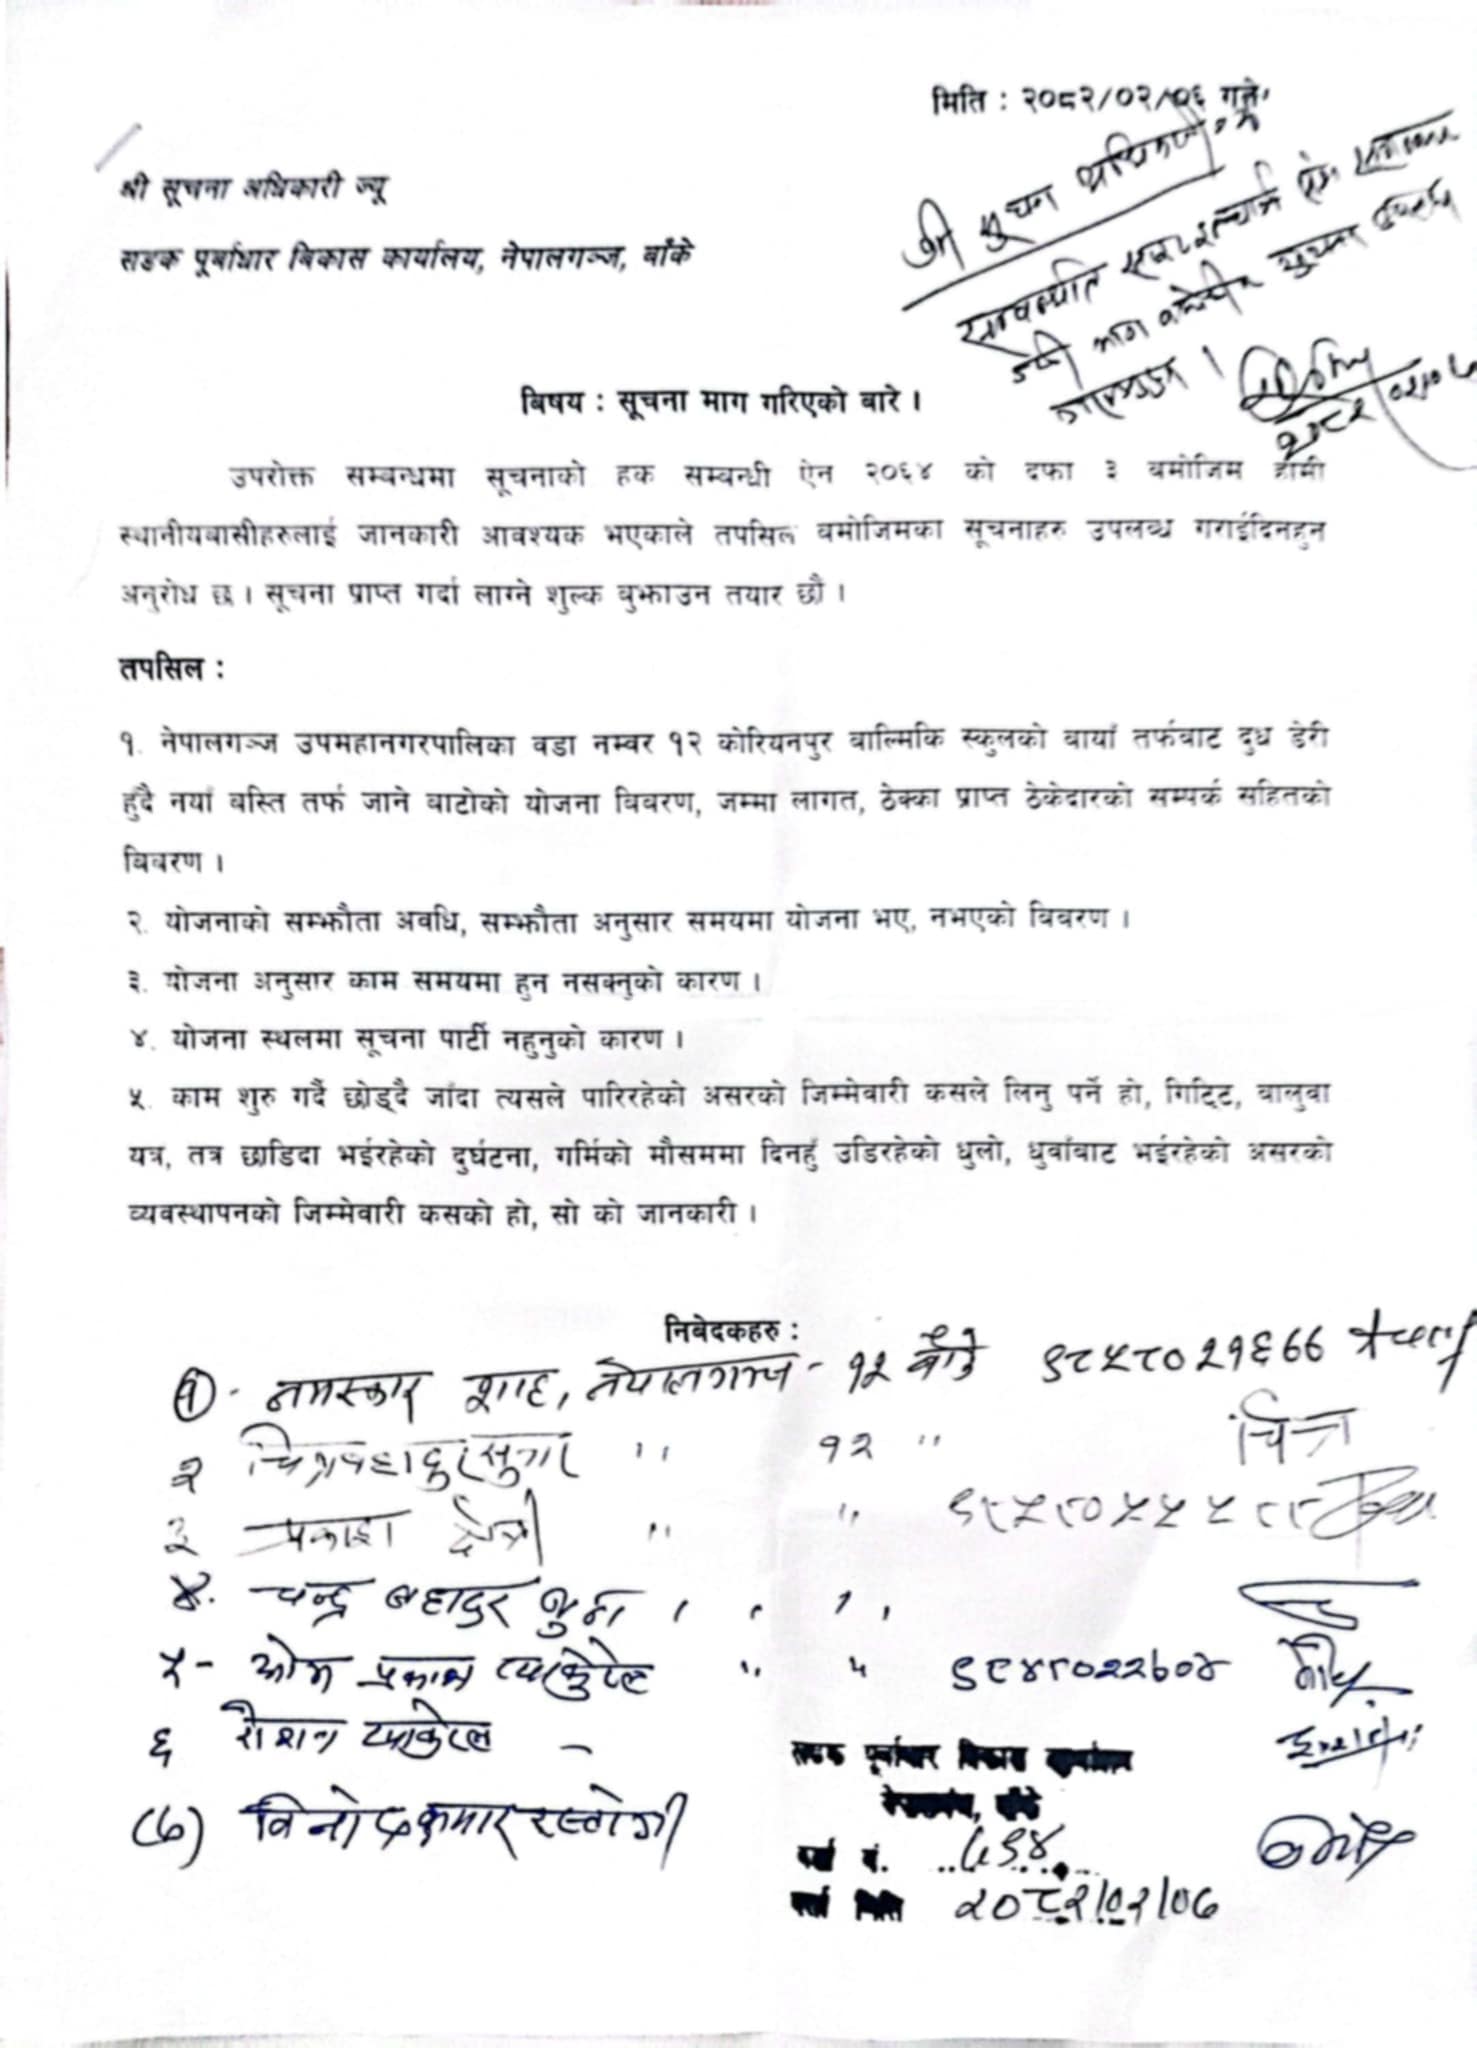 मिति : २०८२/०२/०६ गते
श्री सूचना अधिकारी ज्यू
सडक पूर्वाधार विकास कार्यालय, नेपालगञ्ज, बाँके
श्री सूचना अधिकारी
माग बमोजिम सूचना उपलब्ध
२०८२
विषय : सूचना माग गरिएको बारे ।
उपरोक्त सम्बन्धमा सूचनाको हक सम्बन्धी ऐन २०६४ को दफा ३ बमोजिम हामी
स्थानीयबासीहरुलाई जानकारी आवश्यक भएकाले तपसिल बमोजिमका सूचनाहरु उपलब्ध गराईदिनहुन
अनुरोध छ । सूचना प्राप्त गर्दा लाग्ने शुल्क बुझाउन तयार छौ ।
तपसिल :
१. नेपालगञ्ज उपमहानगरपालिका वडा नम्बर १२ कोरियनपुर बाल्मिकि स्कुलको बायाँ तर्फबाट दुध डेरी
हुदै नयाँ बस्ति तर्फ जाने बाटोको योजना विवरण, जम्मा लागत, ठेक्का प्राप्त ठेकेदारको सम्पर्क सहितको
विवरण ।
२. योजनाको सम्झौता अवधि, सम्झौता अनुसार समयमा योजना भए, नभएको विवरण ।
३. योजना अनुसार काम समयमा हुन नसक्नुको कारण ।
४. योजना स्थलमा सूचना पार्टी नहुनुको कारण ।
५. काम शुरु गर्दै छोड्दै जाँदा त्यसले पारिरहेको असरको जिम्मेवारी कसले लिनु पर्ने हो, गिट्टि, बालुवा
यत्र, तत्र छाडिदा भईरहेको दुर्घटना, गर्मिको मौसममा दिनहुँ उडिरहेको धुलो, धुवाँबाट भईरहेको असरको
व्यवस्थापनको जिम्मेवारी कसको हो, सो को जानकारी ।
निवेदकहरु :
१- नमस्कार शाह, नेपालगञ्ज - १२ बाँके ९८५८०२१६७७
२ चित्रबहादुर सुनार " १२ " चित्र
३ प्रकाश क्षेत्री " " ९८५८०५५५८८
४. चन्द्र बहादुर " "
५- ओम प्रकाश " " ९८४८०२२७०४
६ रोशन -
(७) विनोद कुमार रस्तोगी
सडक पूर्वाधार विकास कार्यालय
नेपालगंज, बाँके
दर्ता नं. ७९४
दर्ता मिति २०८२/०२/०७